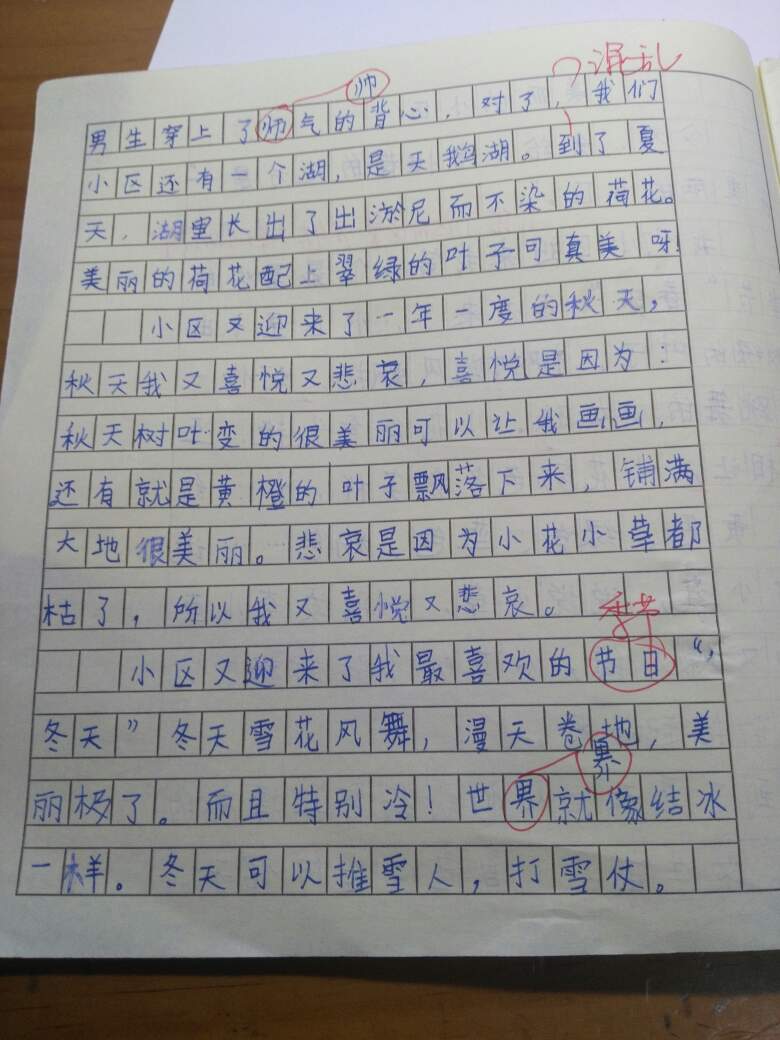 混乱
帅
男生穿上了帅气的背心，对了，我们
小区还有一个湖，是天鹅湖。到了夏
天，湖里长出了出淤尼而不染的荷花。
美丽的荷花配上翠绿的叶子可真美呀！
小区又迎来了一年一度的秋天，
秋天我又喜悦又悲哀，喜悦是因为：
秋天树叶变的很美丽可以让我画画，
还有就是黄橙的叶子飘落下来，铺满
大地很美丽。悲哀是因为小花小草都
枯了，所以我又喜悦又悲哀。
季节
小区又迎来了我最喜欢的节日“，
冬天”冬天雪花风舞，漫天卷地，美
界
丽极了。而且特别冷！世界就像结冰
一样。冬天可以推雪人，打雪仗。